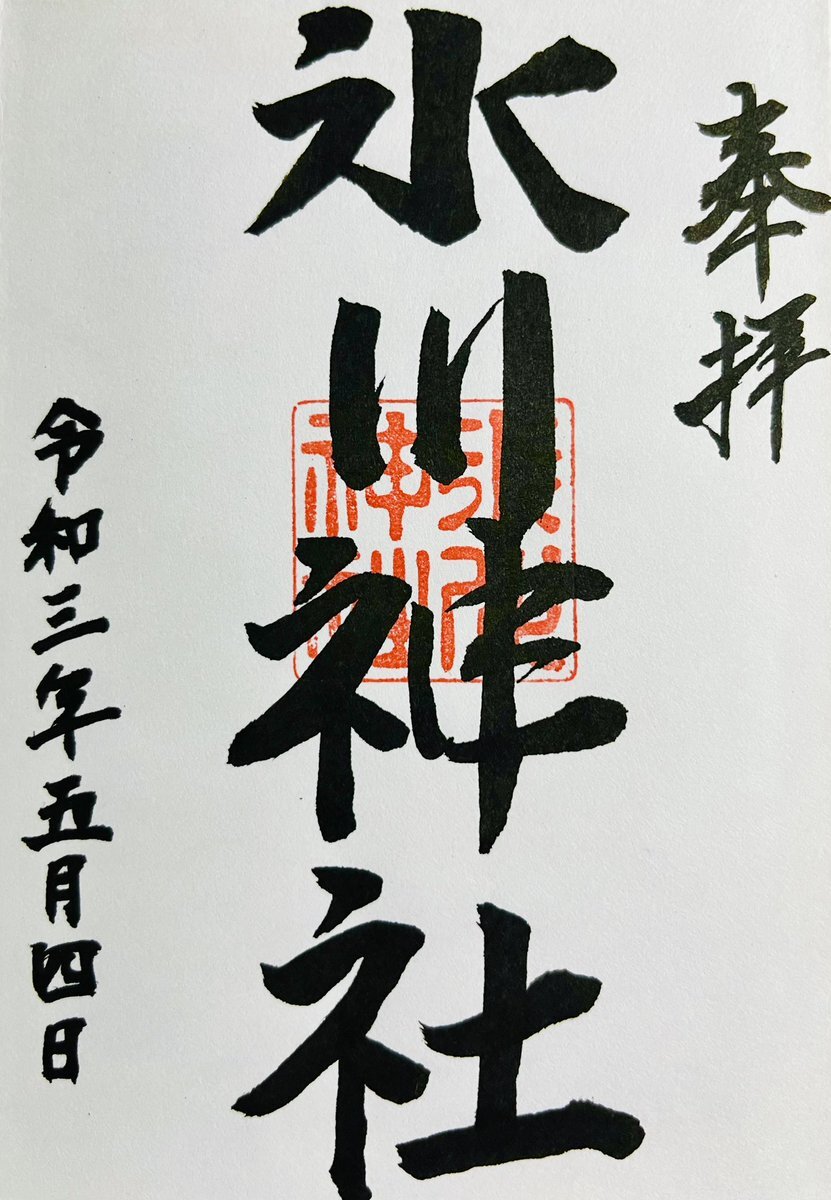 奉拝
氷川神社
令和三年五月四日